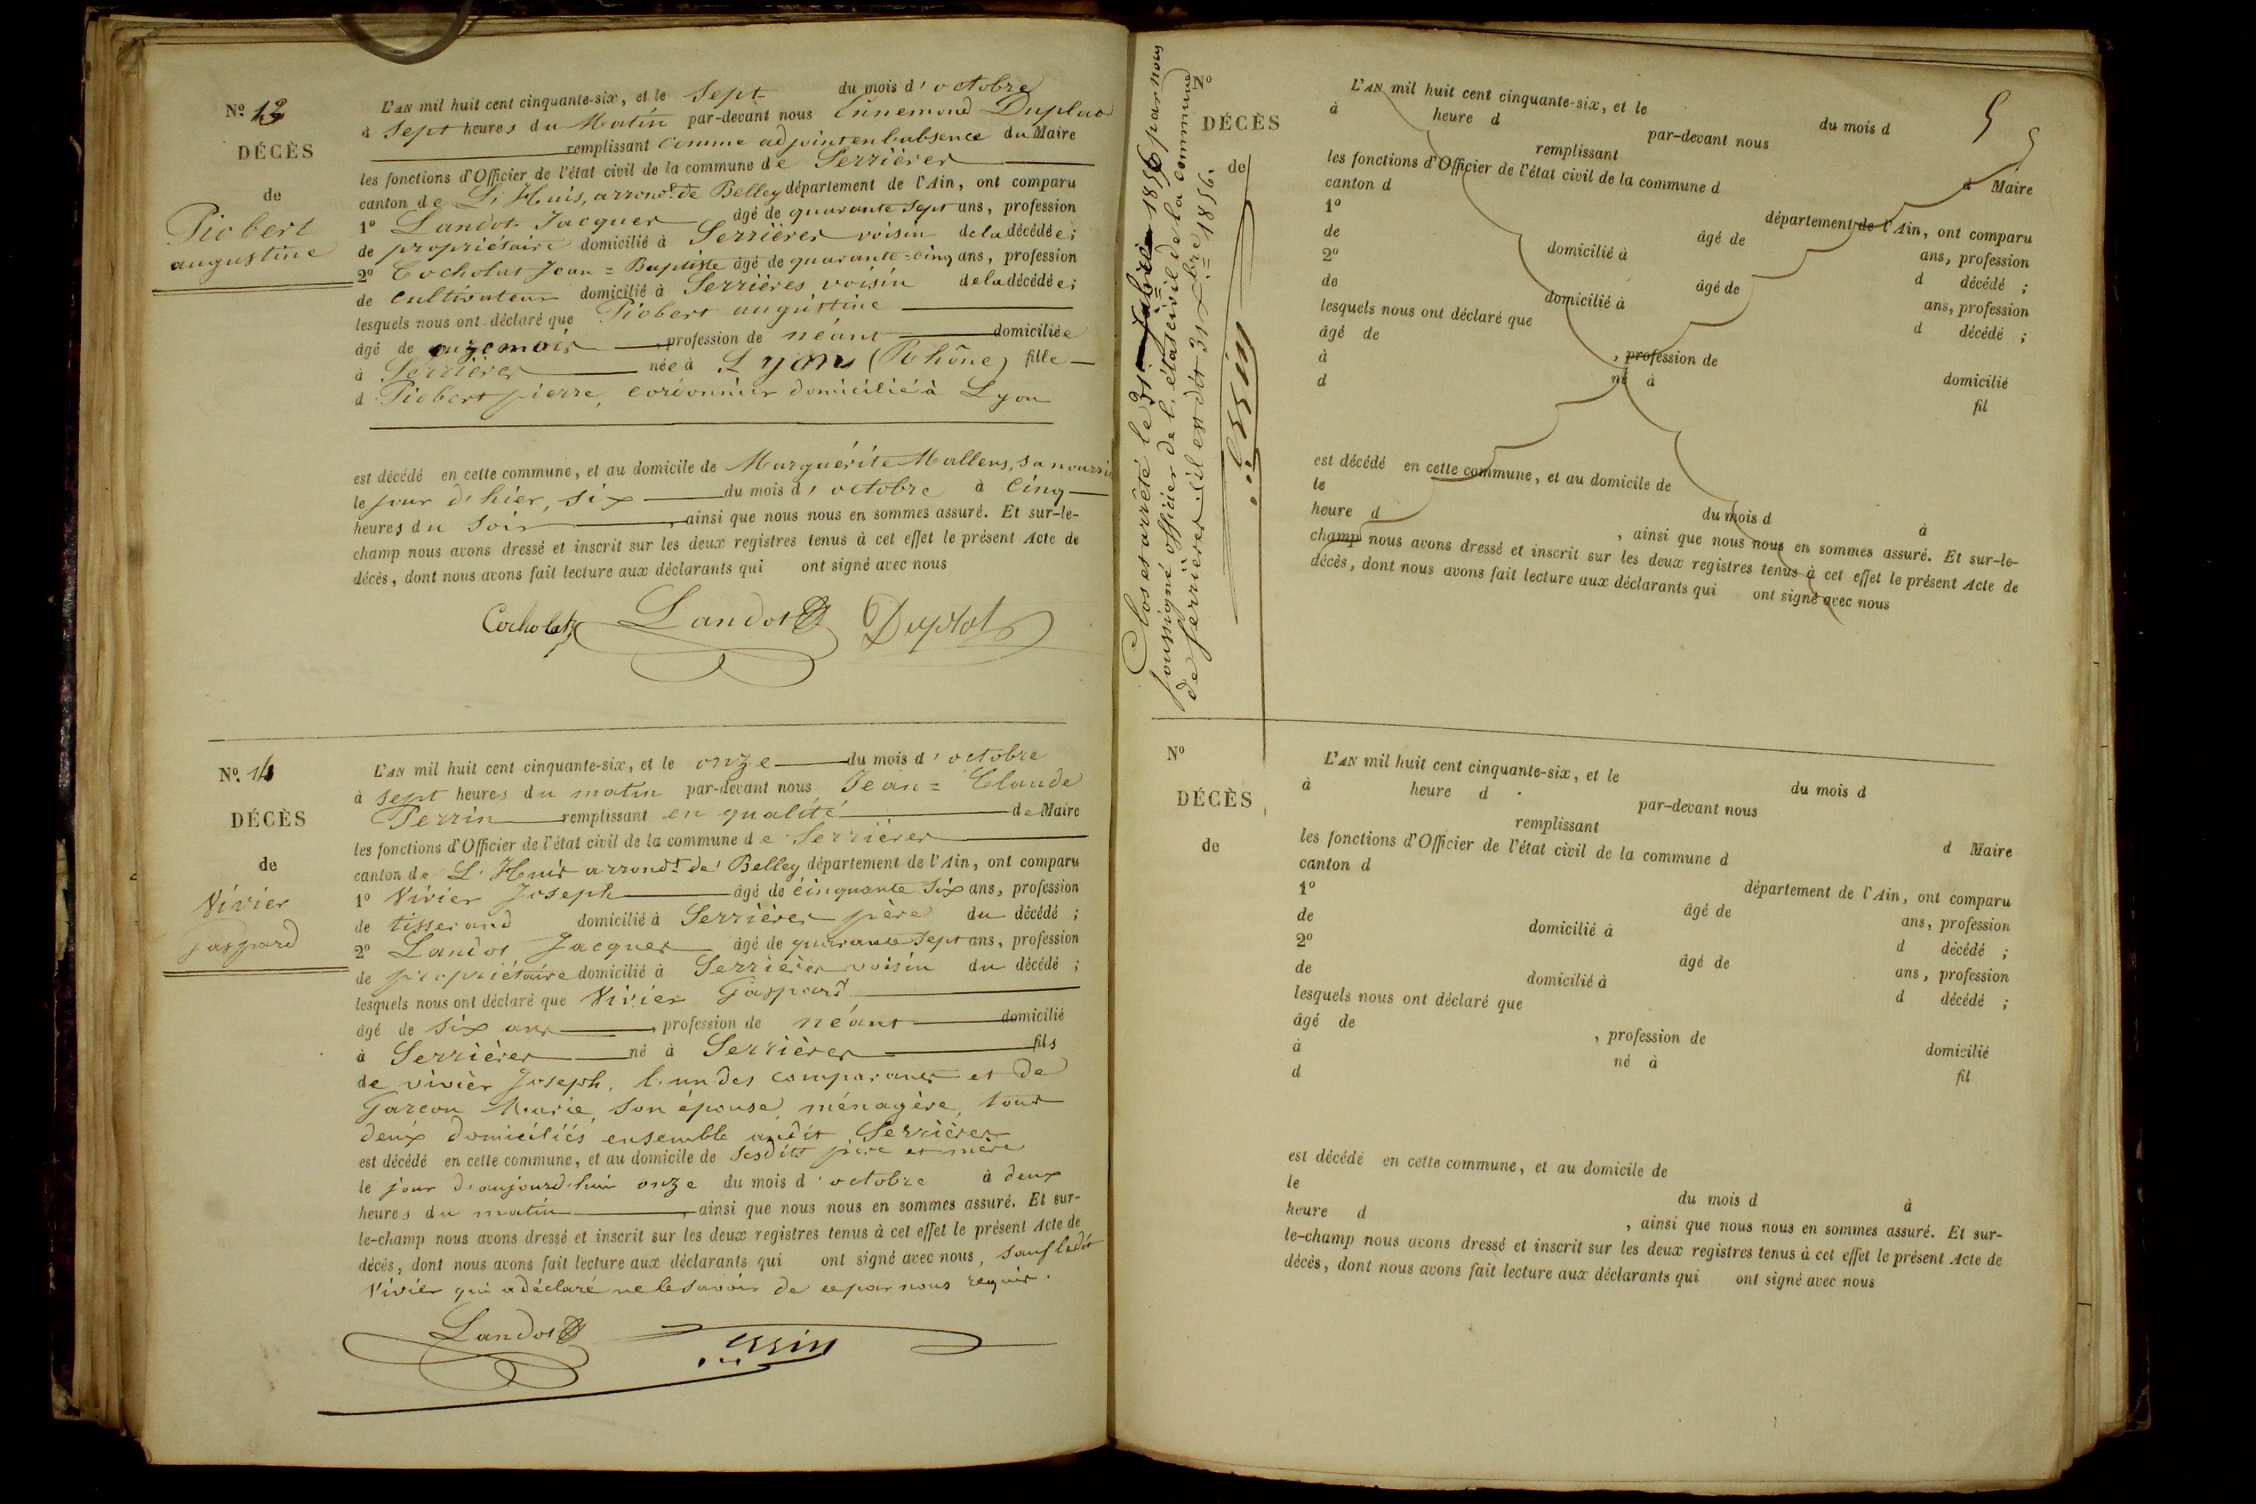 Nº 13
DÉCÈS
de
Piobert
augustine
L'AN mil huit cent cinquante-six, et le sept du mois d'octobre
à sept heures du Matin par-devant nous Ennemond
remplissant comme adjoint en l'absence du Maire
les fonctions d'Officier de l'état civil de la commune de Serrières
canton de L'Huis, arrond.t de Belley département de l'Ain, ont comparu
1º Landot Jacques âgé de quarante sept ans, profession
de propriétaire domicilié à Serrières voisin de la décédée;
2º Cocholat Jean=Baptiste âgé de quarante=cinq ans, profession
de cultivateur domicilié à Serrières voisin de la décédée;
lesquels nous ont déclaré que Piobert augustine
âgé de onze mois, profession de néant domiciliée
à Serrières née à Lyon (Rhône) fille
d Piobert pierre, cordonnier domicilié à Lyon
est décédé en cette commune, et au domicile de Marguerite Mallens, sa
le jour d'hier, six du mois d'octobre à cinq
heures du soir, ainsi que nous nous en sommes assuré. Et sur-le-
champ nous avons dressé et inscrit sur les deux registres tenus à cet effet le présent Acte de
décès, dont nous avons fait lecture aux déclarants qui ont signé avec nous
Cocholat Landot Duplot
Nº. 14
DÉCÈS
de
Vivier
gaspard
L'AN mil huit cent cinquante-six, et le onze du mois d'octobre
à sept heures du matin par-devant nous Jean=Claude
Perrin remplissant en qualité de Maire
les fonctions d'Officier de l'état civil de la commune de Serrières
canton de L'Huis arrond.t de Belley, département de l'Ain, ont comparu
1º Vivier Joseph âgé de cinquante six ans, profession
de tisserand domicilié à Serrières père du décédé ;
2º Landot Jacques âgé de quarante sept ans, profession
de propriétaire domicilié à Serrières voisin du décédé ;
lesquels nous ont déclaré que Vivier Gaspard
âgé de six ans, profession de néant domicilié
à Serrières né à Serrières fils
de vivier Joseph, l'un des comparants et de
Garcon Marie, son épouse, ménagère, tous
deux domiciliés ensemble audit Serrières
est décédé en cette commune, et au domicile de sesdits père et mère
le jour d'aujourd'hui onze du mois d'octobre à deux
heures du matin, ainsi que nous nous en sommes assuré. Et sur-
le-champ nous avons dressé et inscrit sur les deux registres tenus à cet effet le présent Acte de
décès, dont nous avons fait lecture aux déclarants qui ont signé avec nous, sauf ledit
Vivier qui a déclaré ne le savoir de ce par nous requis.
Landot Perrin
Clos et arrêté le 31 1856 par nous
soussigné officier de l'état civil de la commune
de Serrières
Perrin
Nº
DÉCÈS
de
5
L'AN mil huit cent cinquante-six, et le du mois d
à heure d par-devant nous
remplissant d Maire
les fonctions d'Officier de l'état civil de la commune d
canton d département de l'Ain, ont comparu
1º âgé de ans, profession
de domicilié à d décédé ;
2º âgé de ans, profession
de domicilié à d décédé ;
lesquels nous ont déclaré que
âgé de , profession de domicilié
à né à fil
d
est décédé en cette commune, et au domicile de
le du mois d à
heure d , ainsi que nous nous en sommes assuré. Et sur-le-
champ nous avons dressé et inscrit sur les deux registres tenus à cet effet le présent Acte de
décès, dont nous avons fait lecture aux déclarants qui ont signé avec nous
Nº
DÉCÈS
de
L'AN mil huit cent cinquante-six, et le du mois d
à heure d par-devant nous
remplissant d Maire
les fonctions d'Officier de l'état civil de la commune d
canton d département de l'Ain, ont comparu
1º âgé de ans, profession
de domicilié à d décédé ;
2º âgé de ans, profession
de domicilié à d décédé ;
lesquels nous ont déclaré que
âgé de , profession de domicilié
à né à fil
d
est décédé en cette commune, et au domicile de
le du mois d à
heure d , ainsi que nous nous en sommes assuré. Et sur-
le-champ nous avons dressé et inscrit sur les deux registres tenus à cet effet le présent Acte de
décès, dont nous avons fait lecture aux déclarants qui ont signé avec nous